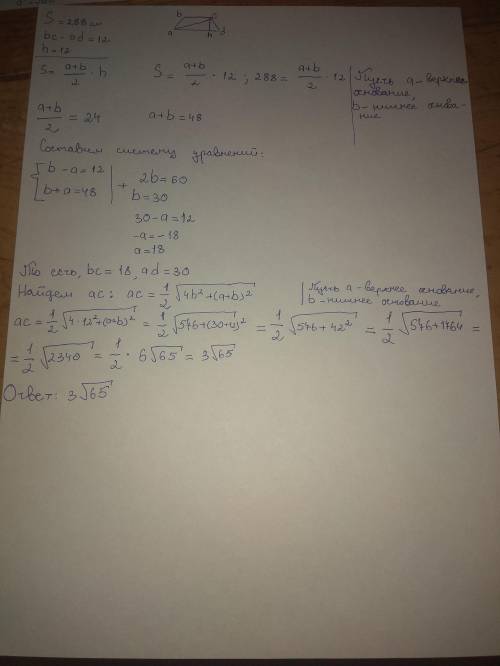 S = 288 см
b c
a h d
bc - ad = 12
h = 12
S = (a+b)/2 · h S = (a+b)/2 · 12 ; 288 = (a+b)/2 · 12
Пусть a - верхнее
основание,
b - нижнее основа-
ние
(a+b)/2 = 24 a+b = 48
Составим систему уравнений:
{ b - a = 12
{ b + a = 48 | + 2b = 60
b = 30
30 - a = 12
-a = -18
a = 18
То есть, bc = 18, ad = 30
Найдем ac: ac = 1/2 √(4h² + (a+b)²)
Пусть a - верхнее основание,
b - нижнее основание
ac = 1/2 √(4 · 12² + (a+b)²) = 1/2 √(576 + (30+12)²) = 1/2 √(576 + 42²) = 1/2 √(576 + 1764) =
= 1/2 √2340 = 1/2 · 6√65 = 3√65
Ответ: 3√65